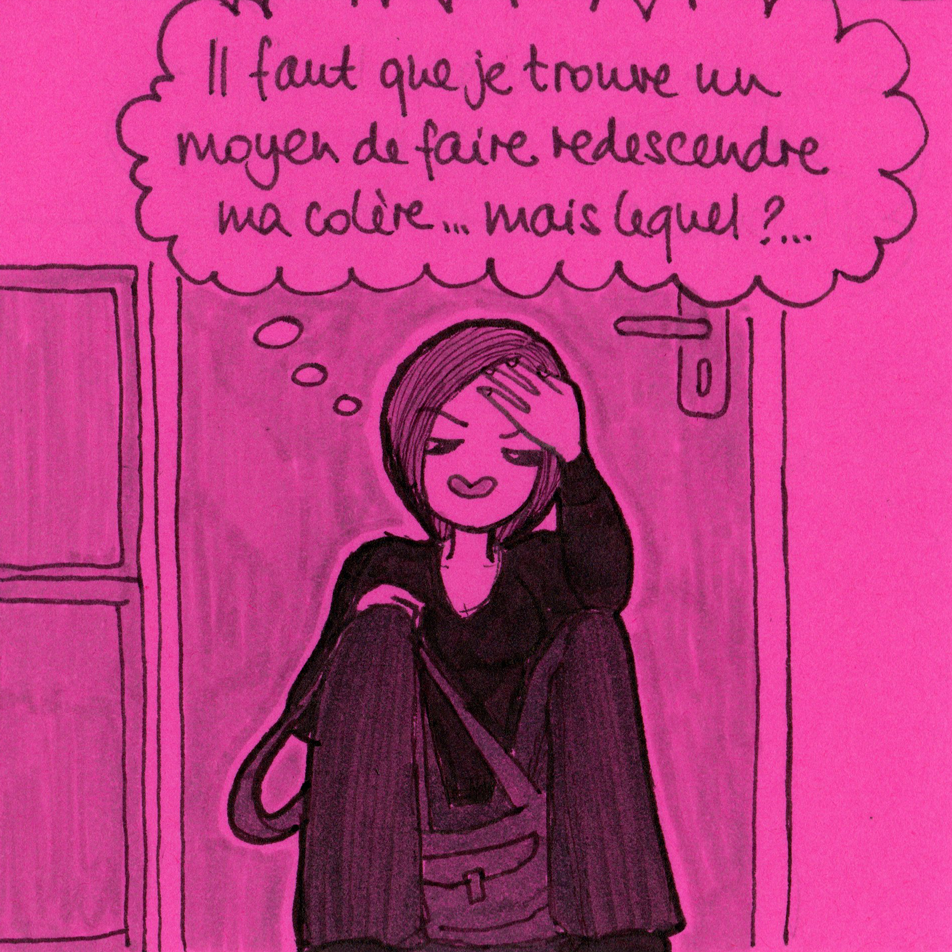 Il faut que je trouve un
moyen de faire redescendre
ma colère... mais lequel ?...